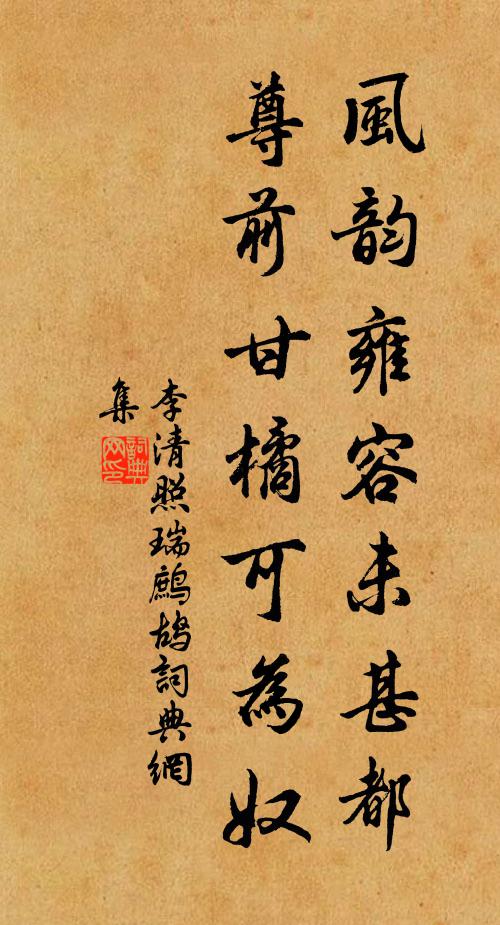 風韵雍容未甚都
尊前甘橘可為奴
李清照瑞鷓鴣詞典網
集
詞典網印